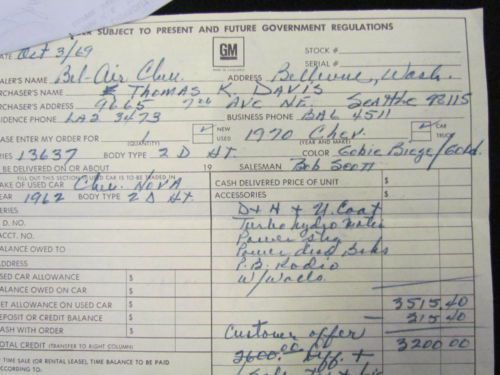 AR SUBJECT TO PRESENT AND FUTURE GOVERNMENT REGULATIONS
DATE Oct 3/69 GM STOCK #
SERIAL #
ALER'S NAME Bel-Air Chev. ADDRESS Bellevue, Wash.
RCHASER'S NAME THOMAS K. DAVIS
RCHASER'S ADDRESS 9665 AVE NE. SEATTLE 98115
IDENCE PHONE LA2 3473 BUSINESS PHONE BAL 4511
EASE ENTER MY ORDER FOR 1 NEW USED 1970 Chev. CAR TRUCK
(YEAR) (MAKE)
RIES 13637 BODY TYPE 2 D HT. COLOR Gobie Biege/Gold
BE DELIVERED ON OR ABOUT 19 SALESMAN Bob Scott
FILL OUT THIS SECTION IF USED CAR IS TO BE TRADED IN
AKE OF USED CAR Chev. NOVA CASH DELIVERED PRICE OF UNIT $
EAR 1962 BODY TYPE 2 D HT ACCESSORIES
ERIES D+H + U.Coat
D. NO. Turbo hydro matic
ACCT. NO. Power stg
ALANCE OWED TO Power disc Brks
ADDRESS P.B. Radio
SED CAR ALLOWANCE $ W/
BALANCE OWED ON CAR $
ET ALLOWANCE ON USED CAR $ 3515.40
EPOSIT OR CREDIT BALANCE $ 315.40
ASH WITH ORDER $ Customer offer 3200.00
OTAL CREDIT (TRANSFER TO RIGHT COLUMN) $ 2600.00 Diff. +
TIME SALE (OR RENTAL LEASE), TIME BALANCE TO BE PAID
ACCORDING TO